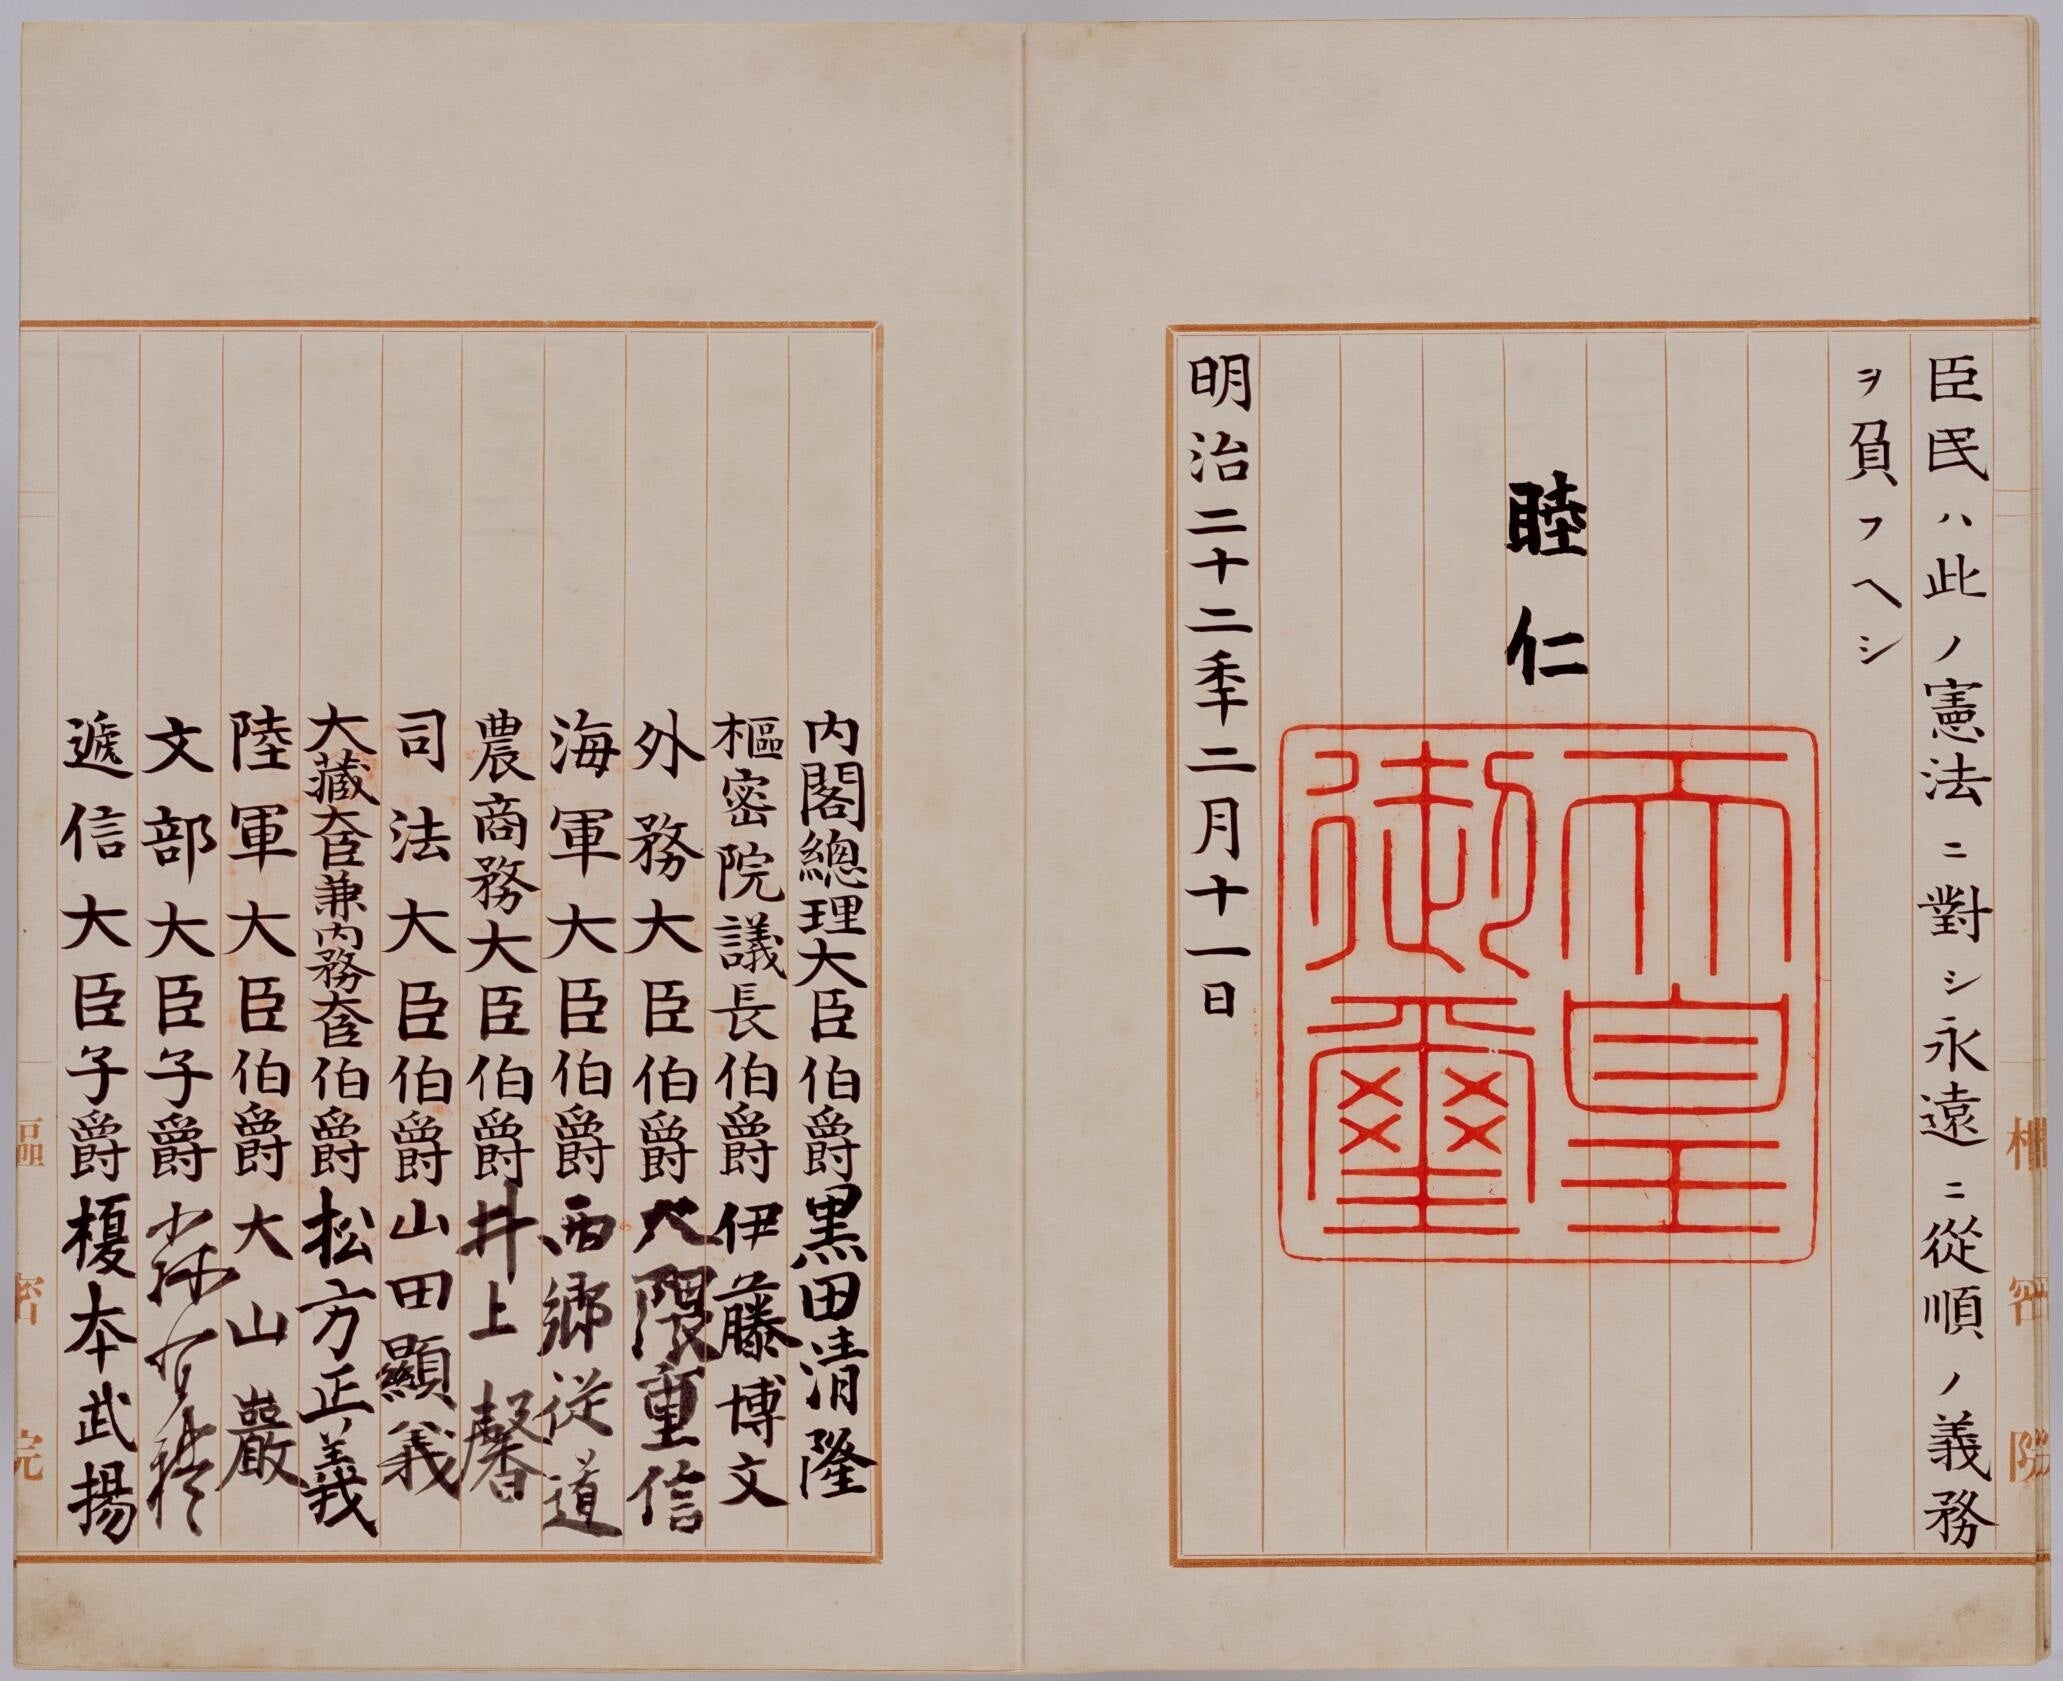 臣民ハ此ノ憲法ニ對シ永遠ニ從順ノ義務
ヲ負フヘシ
睦仁
天皇
御璽
明治二十二秊二月十一日
內閣總理大臣伯爵黒田清隆
樞密院議長伯爵伊藤博文
外務大臣伯爵大隈重信
海軍大臣伯爵西郷従道
農商務大臣伯爵井上馨
司法大臣伯爵山田顯義
大藏大臣兼內務大臣伯爵松方正義
陸軍大臣伯爵大山巖
文部大臣子爵森有禮
遞信大臣子爵榎本武揚
樞密院